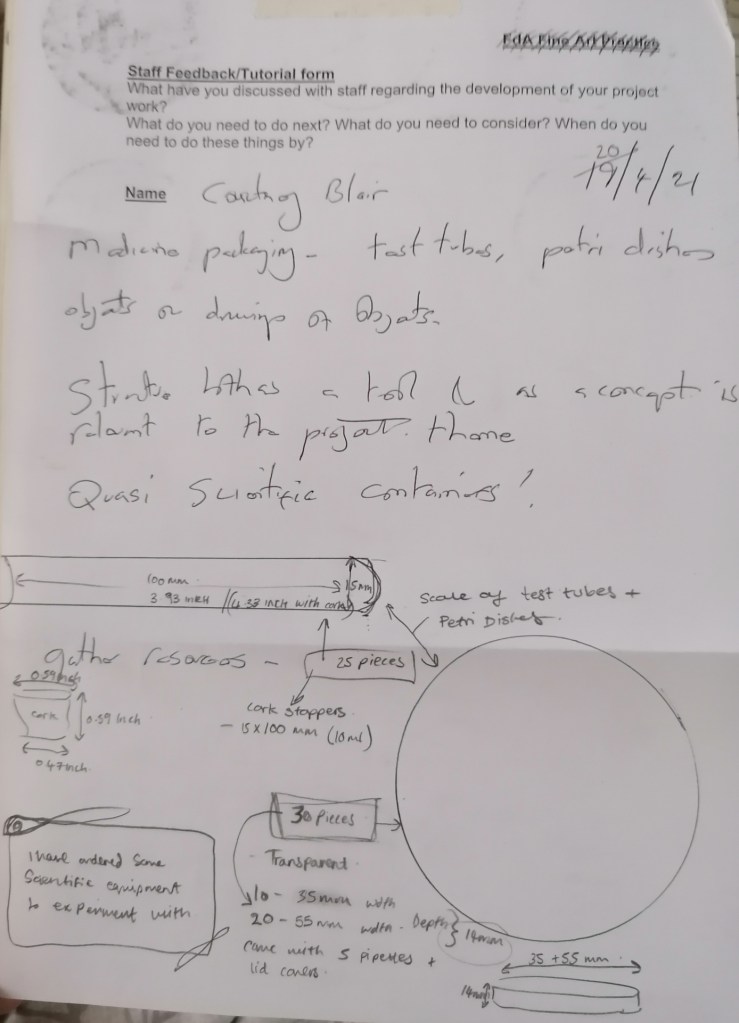 Staff Feedback/Tutorial form
What have you discussed with staff regarding the development of your project
work?
What do you need to do next? What do you need to consider? When do you
need to do these things by?
20
19/4/21
Name Blair
Medicine packaging - test tubes, petri dishes
objects or drawings of objects.
both as a tool as a concept is
relevant to the project theme
Quasi Scientific containers!
100mm
15mm
3.93 inch (4.33 inch with cork)
Scale of test tubes +
Petri Dishes.
gather resources - 25 pieces
0.59 inch
cork 0.59 inch
0.47 inch
cork stoppers
- 15x100 mm (10ml)
30 Pieces
Transparent
10 - 35mm width
20 - 55mm width - Depth } 14mm
came with 5 pipettes +
lid covers.
I have ordered some
Scientific equipment
to experment with
35 + 55 mm
14mm